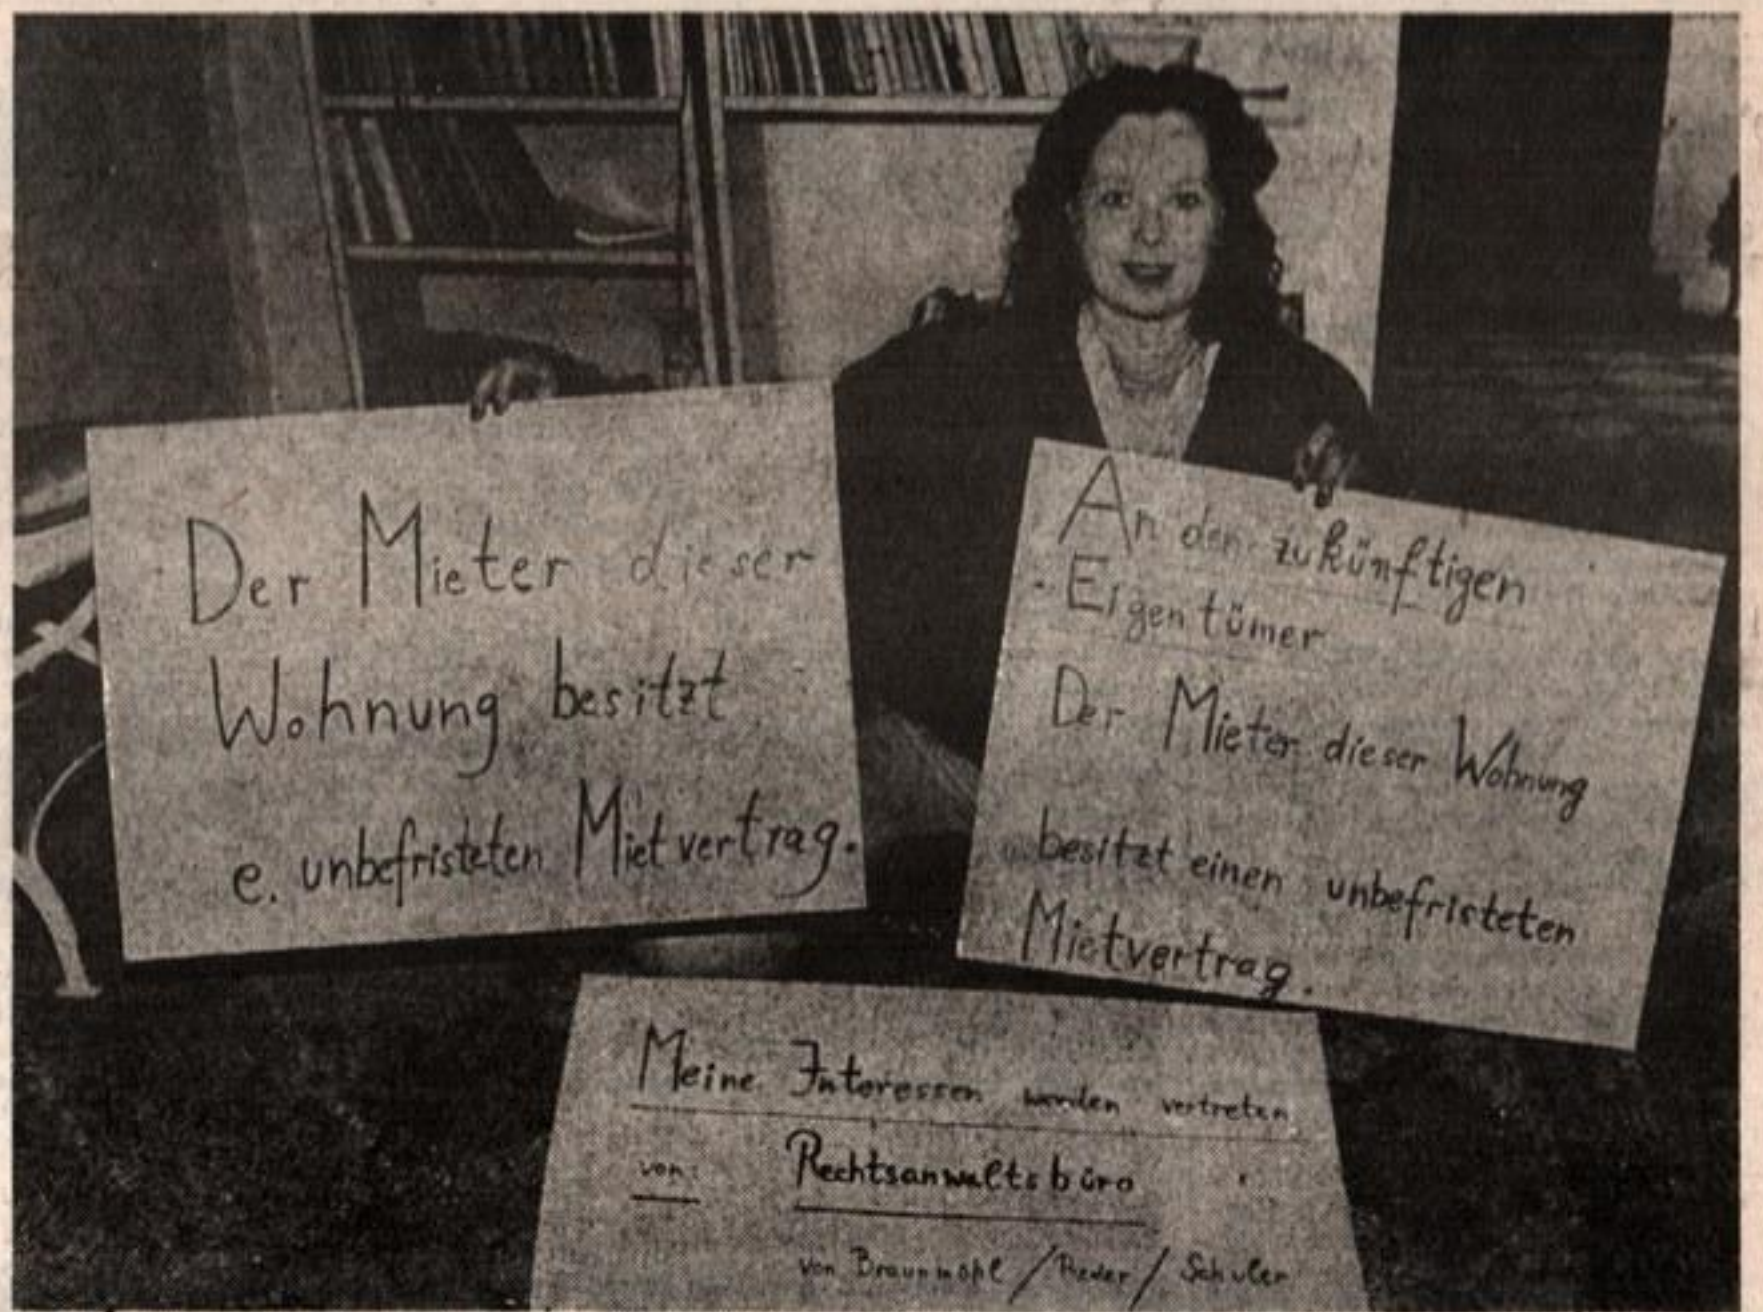 Der Mieter dieser
Wohnung besitzt
e. unbefristeten Mietvertrag.
An den zukünftigen
Eigentümer
Der Mieter dieser Wohnung
besitzt einen unbefristeten
Mietvertrag.
Meine Interessen werden vertreten
von:
Rechtsanwaltsbüro
von Braunmöhl / / Schuler